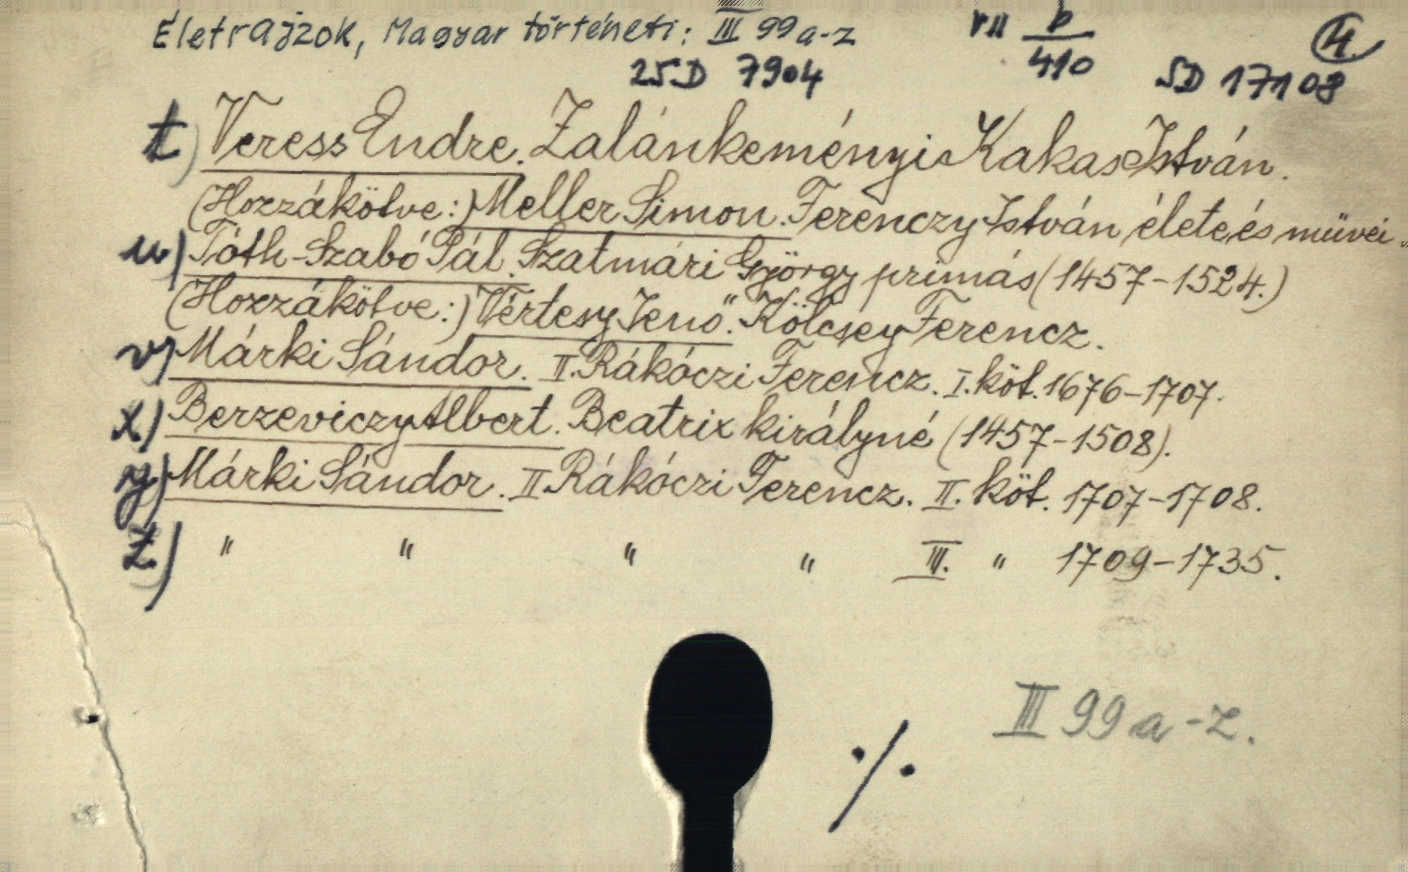 Életrajzok, Magyar történeti: III 99 a-z VII b/410 4.
25D 7904 SD 17108
t) Veress Endre. Zalánkeményi Kakas István.
(Hozzákötve:) Meller Simon. Ferenczy István élete és müvei.
u) Tóth-Szabó Pál. Szatmári György primás (1457-1524.)
(Hozzákötve:) Vértesy Jenő. Kölcsey Ferencz.
v) Márki Sándor. II. Rákóczi Ferencz. I. köt. 1676-1707.
x) Berzeviczy Albert. Beatrix királyné (1457-1508).
y) Márki Sándor. II Rákóczi Ferencz. II. köt. 1707-1708.
z) " " " " III. " 1709-1735.
III 99 a-z.
./.